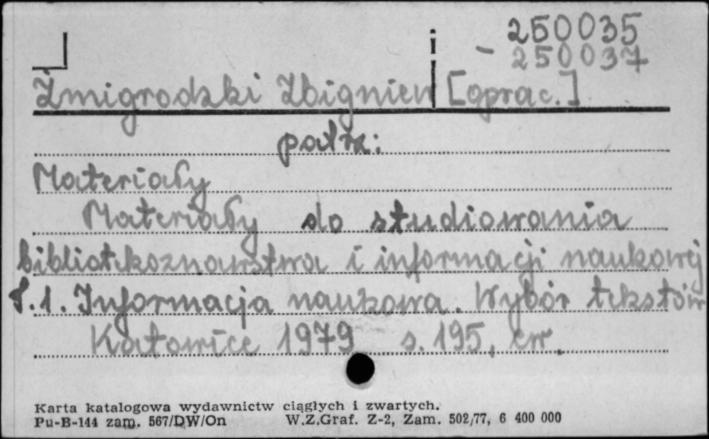 250035
i - 250037
Żmigrodzki Zbigniew [oprac.]
patrz:
Materiały
Materiały do studiowania
bibliotekoznawstwa i informacji naukowej
T.1. Informacja naukowa. Wybór tekstów
Katowice 1979 s. 195,
Karta katalogowa wydawnictw ciągłych i zwartych.
Pu-B-144 zam. 567/DW/On W.Z.Graf. Z-2, Zam. 502/77, 6 400 000